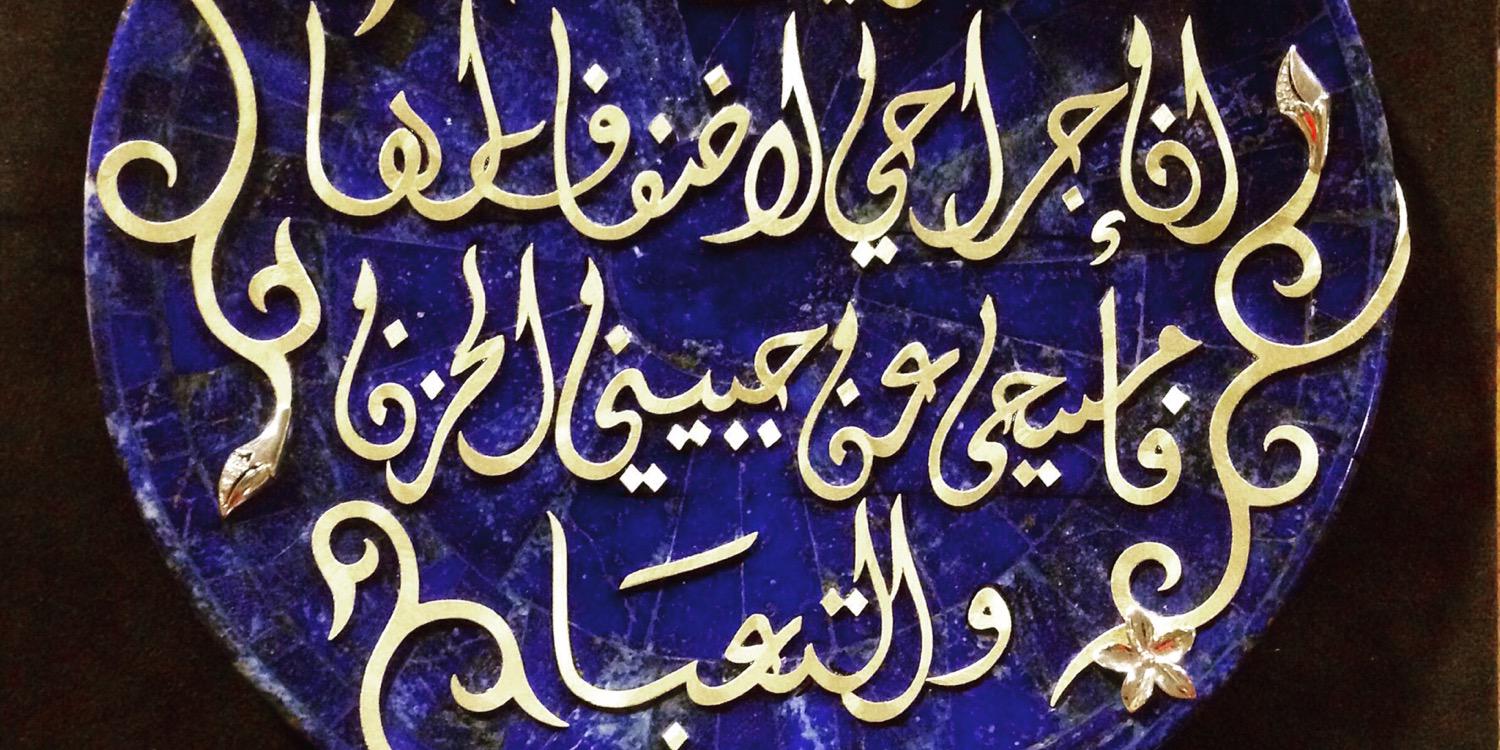 ان جراحي لا ضفاف لها
فأمسحي عن جبيني الحزن
والتعبَا